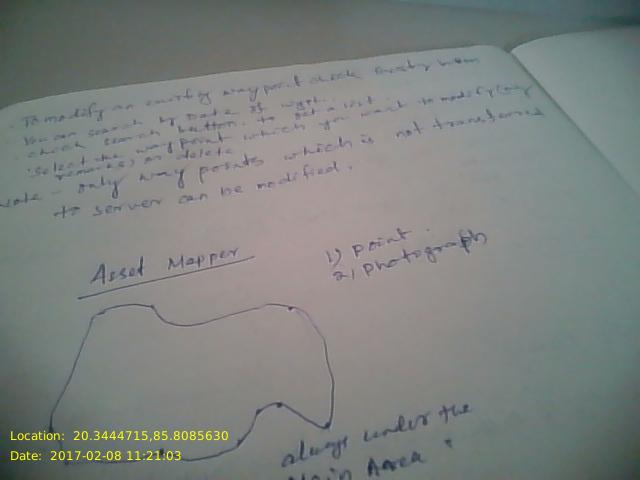 To modify an existing way point check existing button
You can search by date if want.
check search button. to get a list
select the way point which you want to modify (only
remarks) or delete.
Note - only way points which is not transferred
to server can be modified.
Asset Mapper
1) point
2) photograph
always under the
Main Area
Location: 20.3444715,85.8085630
Date: 2017-02-08 11:21:03